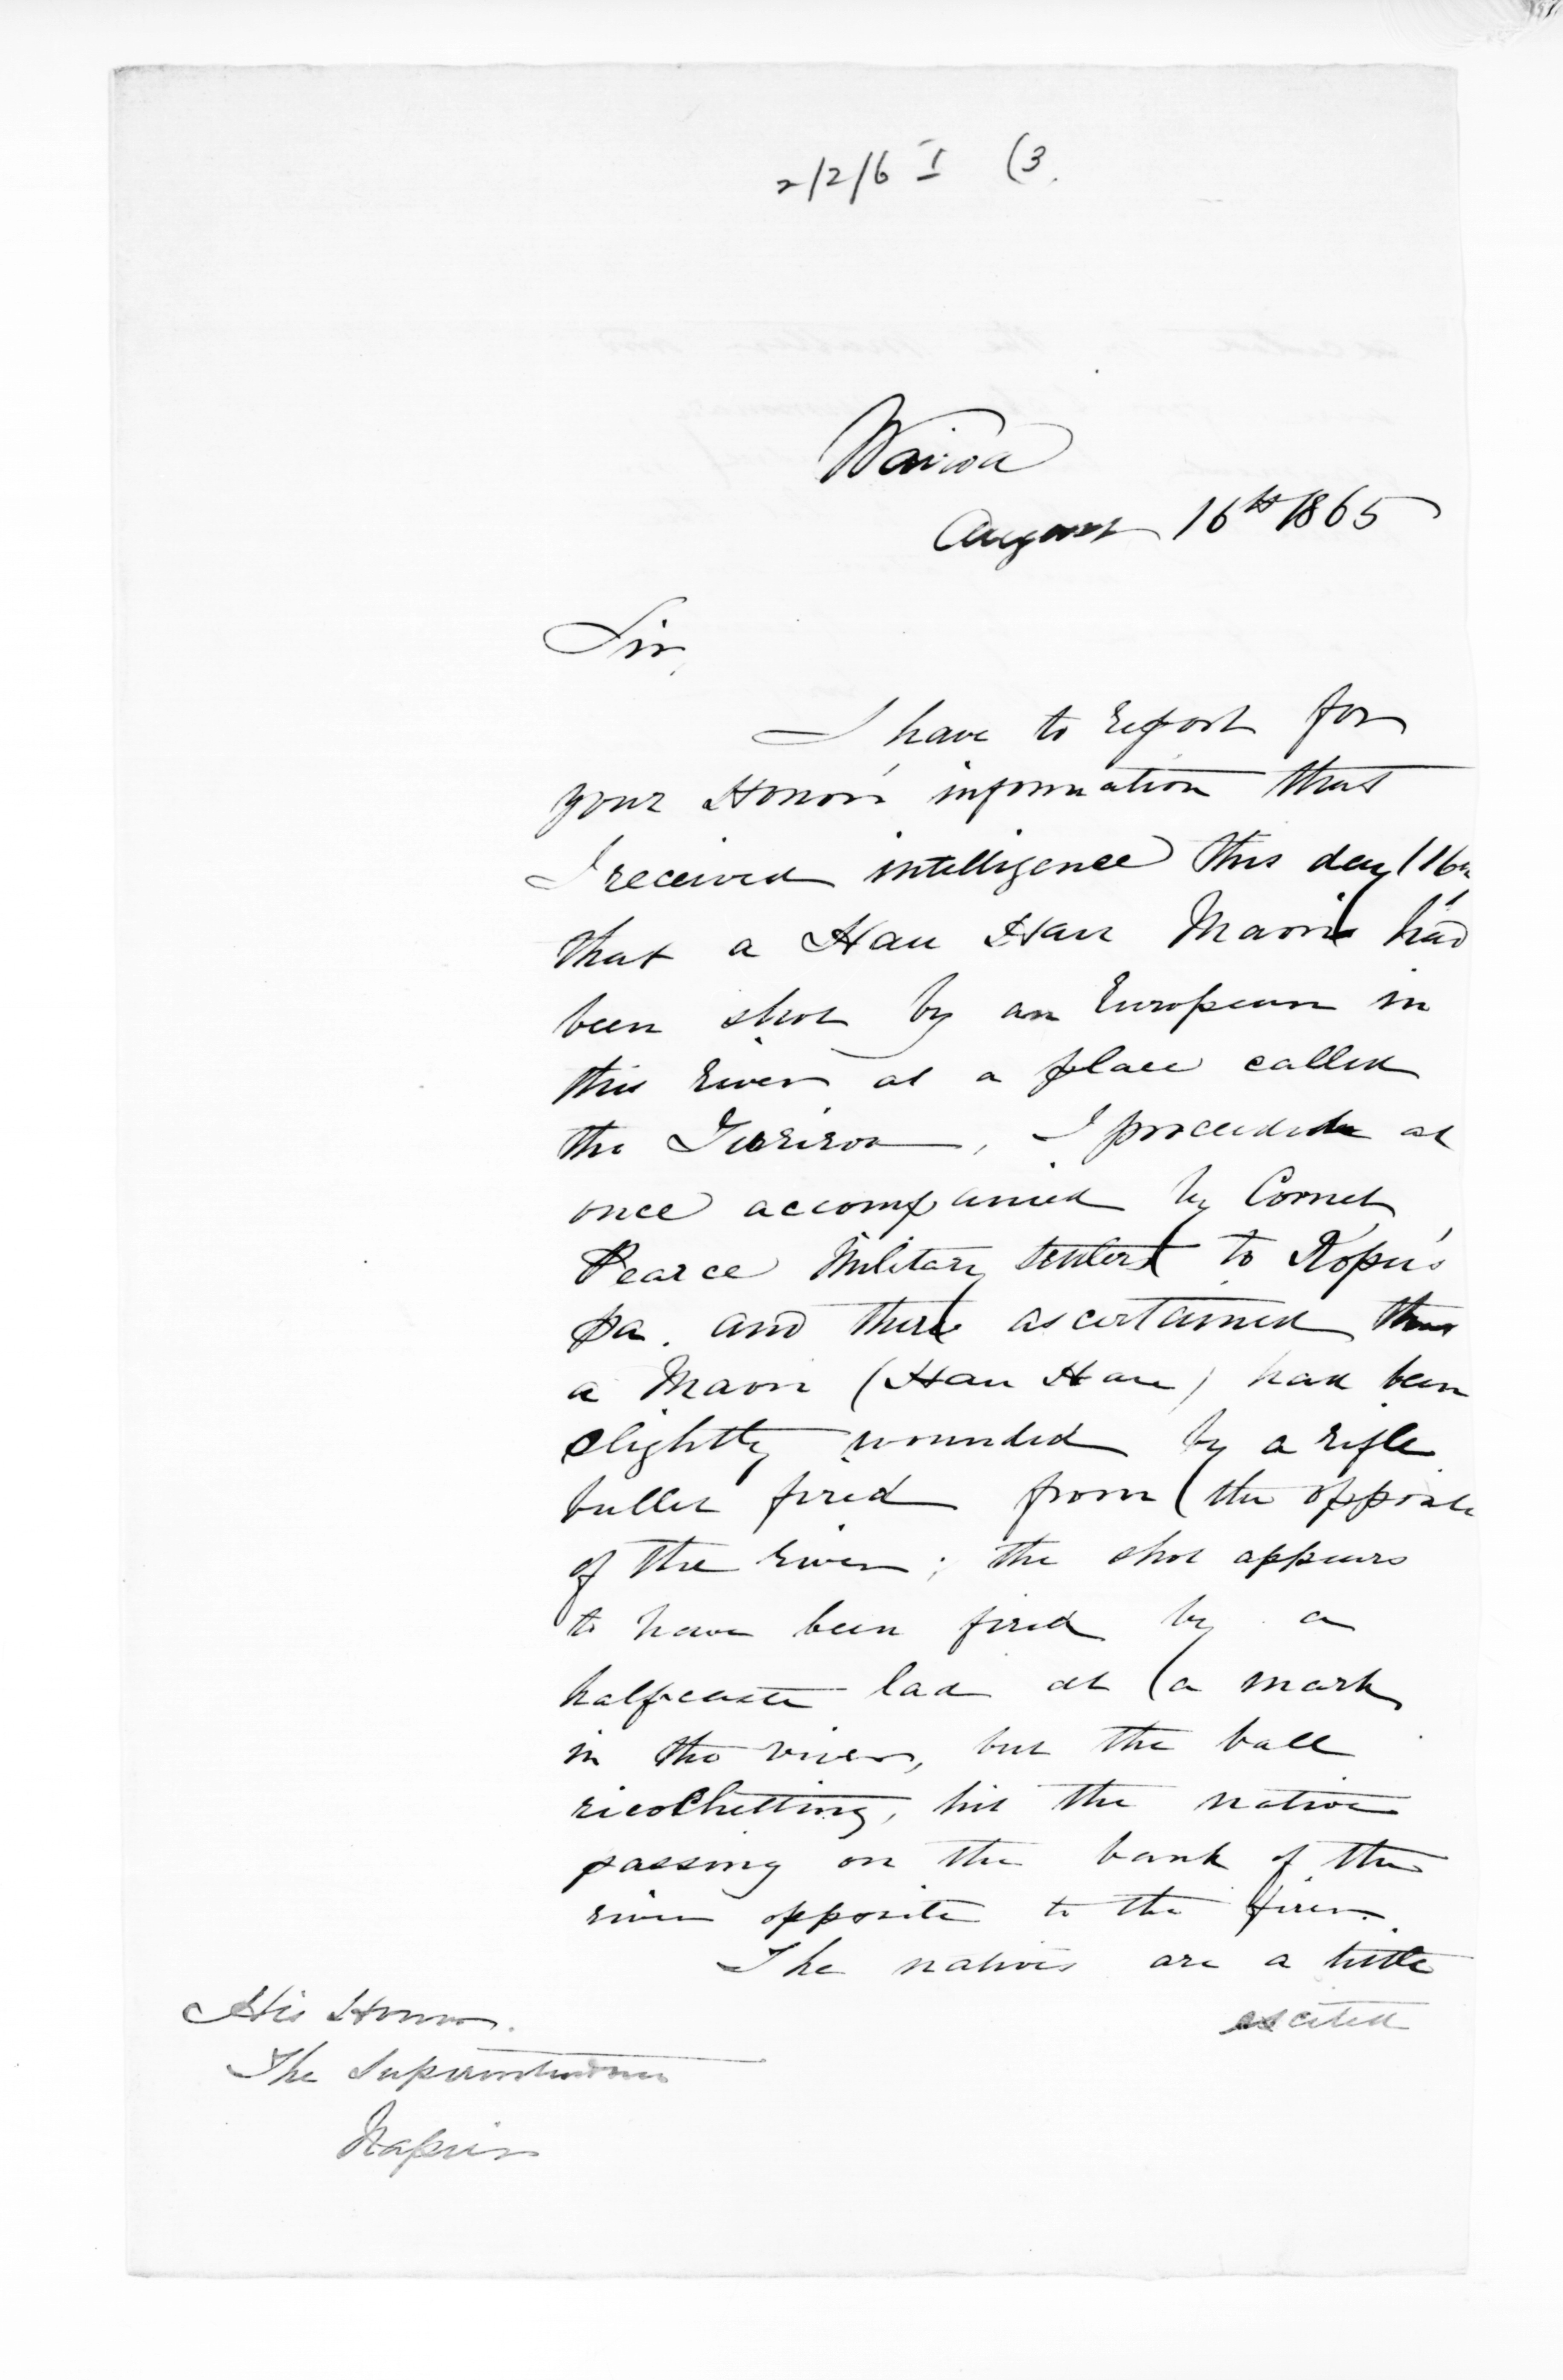 2/2/6 I (3.
Wairoa
August 16th 1865
Sir,
I have to report for
your Honor's information that
I received intelligence this day (16th
that a Hau Hau Maori had
been shot by an European in
this river at a place called
the , I proceeded at
once accompanied by Cornet
Pearce Military Settlers to Kopu's
pa. and there ascertained that
a Maori (Hau Hau) had been
slightly wounded by a rifle
bullet fired from the opposite
of the river; the shot appears
to have been fired by a
halfcaste lad at a mark
in the river, but the ball
ricochetting, hit the native
passing on the bank of the
river opposite to the firer.
The natives are a little
excited
His Honor.
The Superintendent
Napier